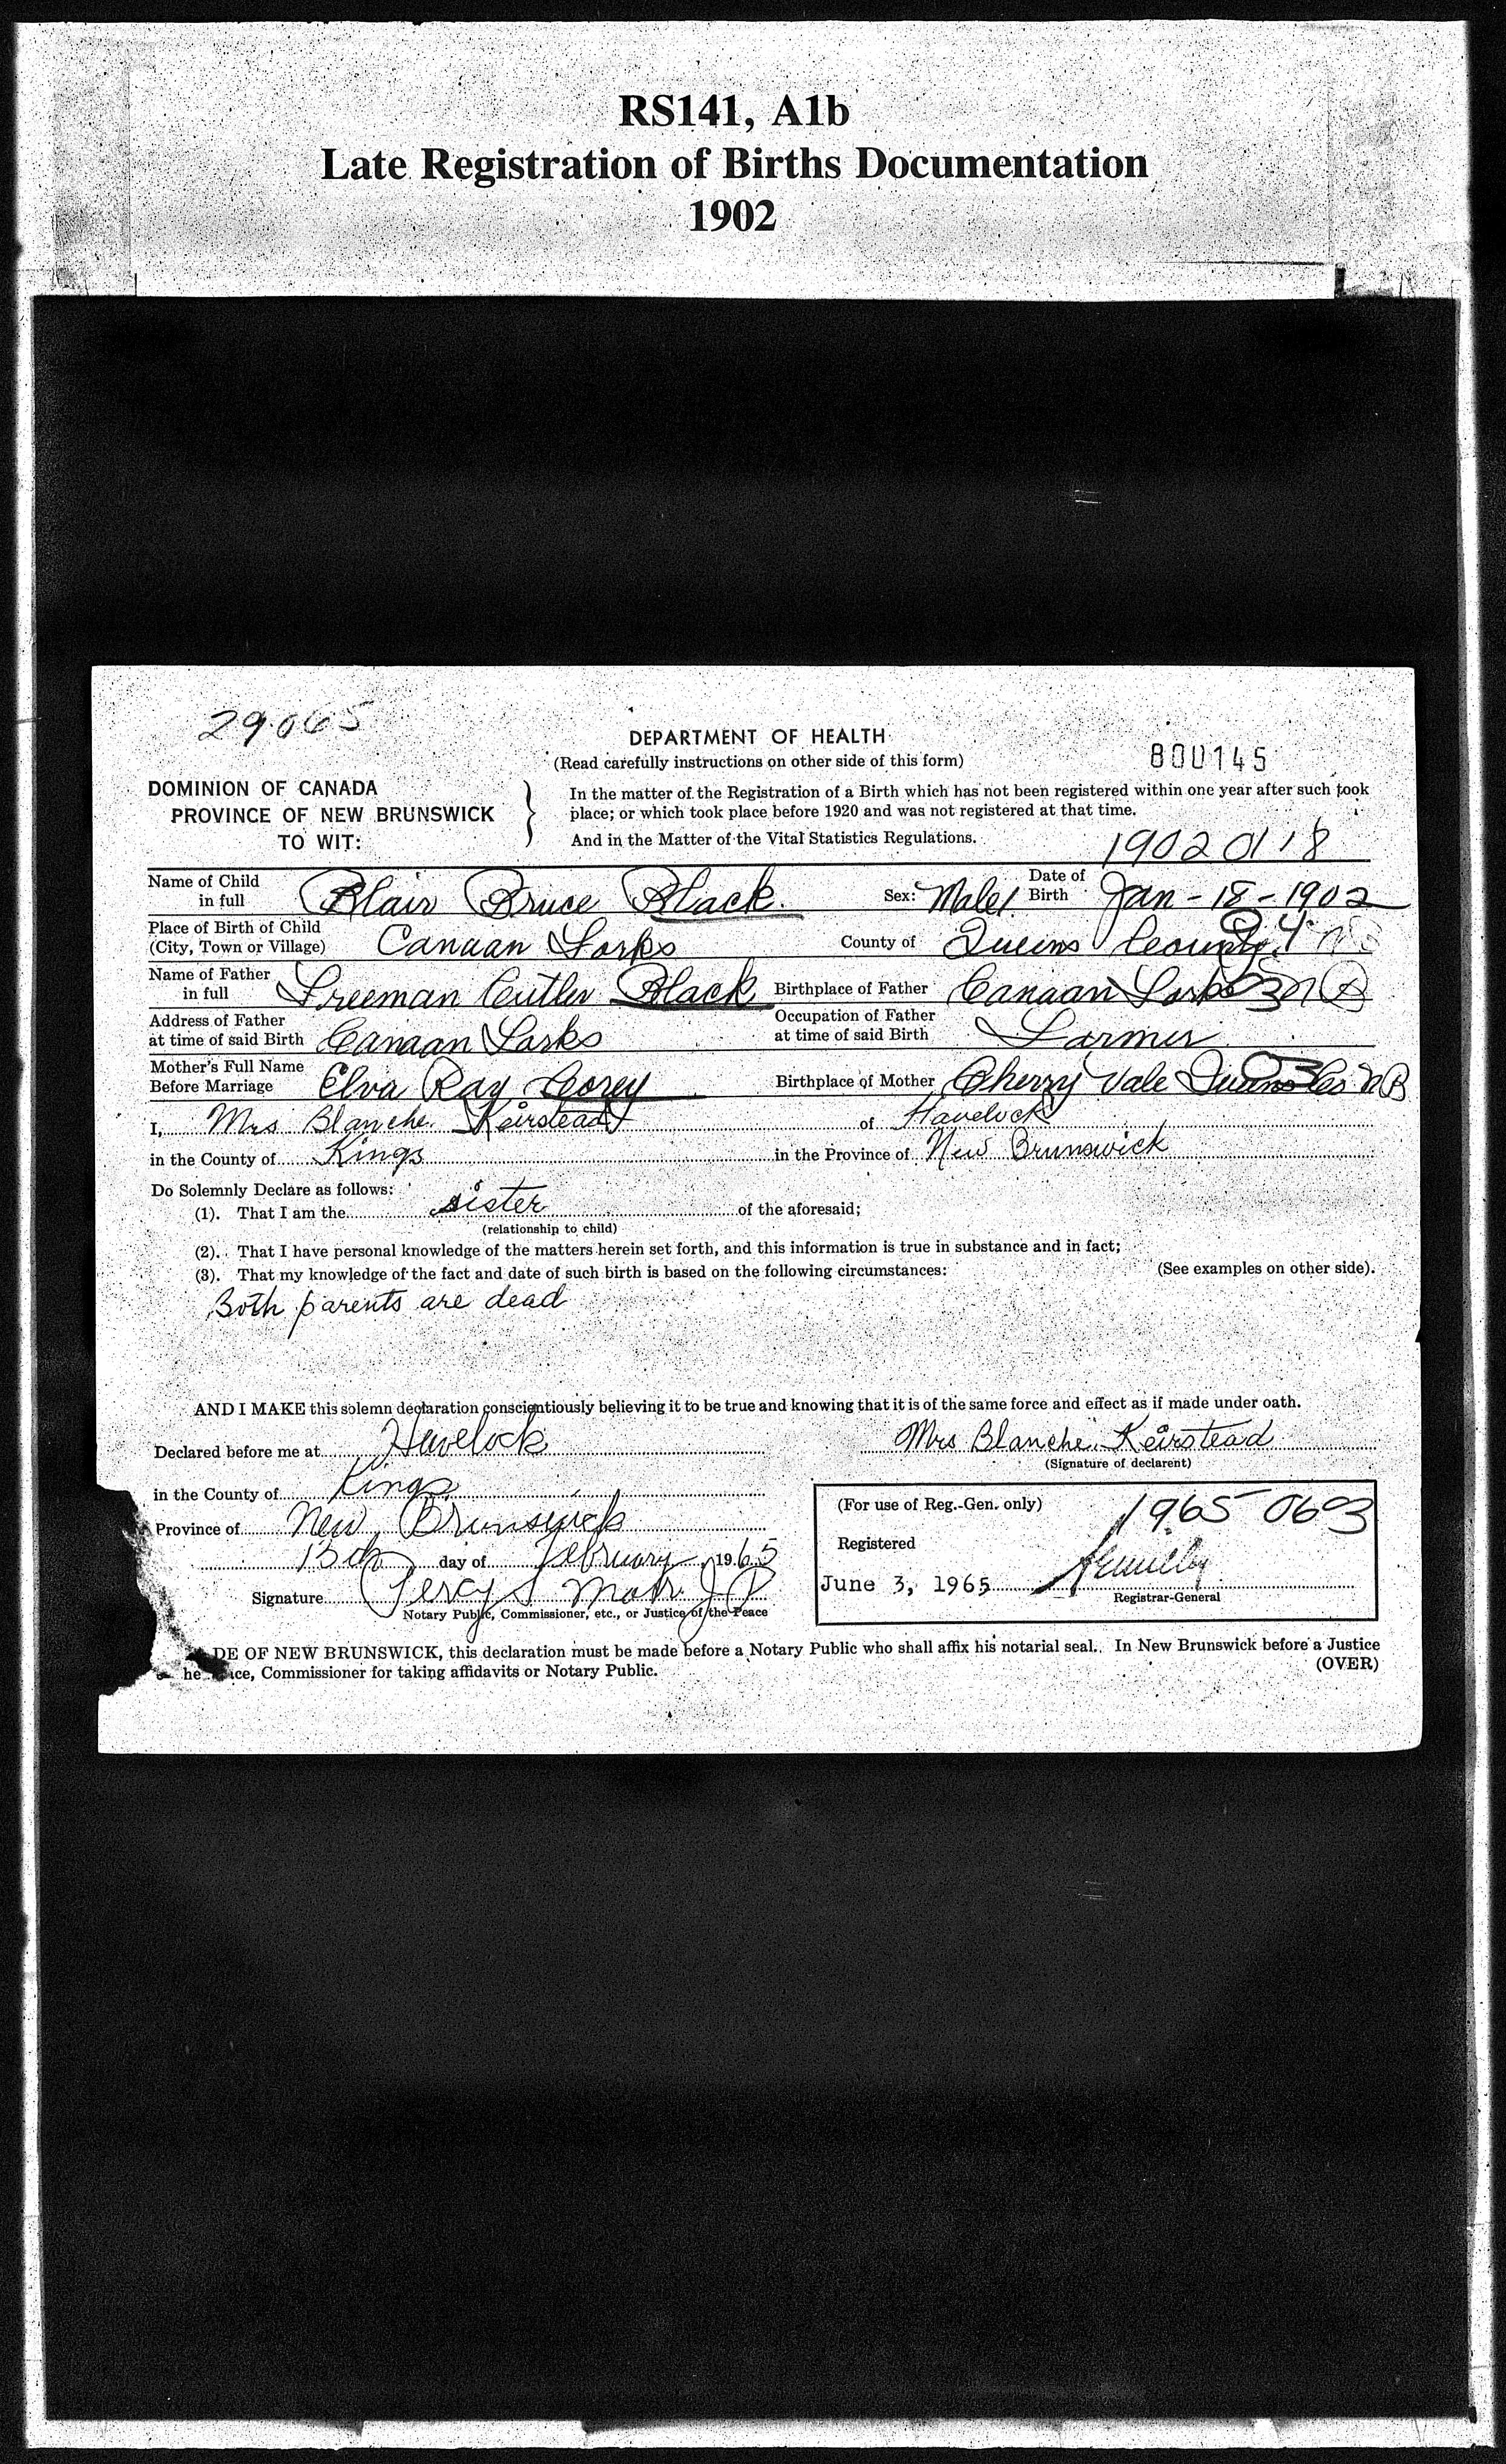 RS141, A1b
Late Registration of Births Documentation
1902
29065
DEPARTMENT OF HEALTH
(Read carefully instructions on other side of this form)
800145
DOMINION OF CANADA
PROVINCE OF NEW BRUNSWICK
TO WIT:
In the matter of the Registration of a Birth which has not been registered within one year after such took
place; or which took place before 1920 and was not registered at that time.
And in the Matter of the Vital Statistics Regulations.
19020118
Name of Child in full Blair Bruce Black. Sex: Male Date of Birth Jan - 18 - 1902
Place of Birth of Child (City, Town or Village) Canaan Forks County of Queens County. 4
Name of Father in full Freeman Cutler Black Birthplace of Father Canaan Forks
Address of Father at time of said Birth Canaan Forks Occupation of Father at time of said Birth Farmer
Mother's Full Name Before Marriage Elva Ray Corey Birthplace of Mother Cherry Vale Queens Co. N B
I, Mrs Blanche Keirstead of Havelock
in the County of Kings in the Province of New Brunswick
Do Solemnly Declare as follows:
(1). That I am the sister of the aforesaid;
(relationship to child)
(2). That I have personal knowledge of the matters herein set forth, and this information is true in substance and in fact;
(3). That my knowledge of the fact and date of such birth is based on the following circumstances: (See examples on other side).
Both parents are dead
AND I MAKE this solemn declaration conscientiously believing it to be true and knowing that it is of the same force and effect as if made under oath.
Declared before me at Havelock Mrs Blanche Keirstead
(Signature of declarent)
in the County of Kings
Province of New Brunswick
13th day of February, 1965
Signature Percy S J P
Notary Public, Commissioner, etc., or Justice of the Peace
(For use of Reg.-Gen. only) 1965 0603
Registered
June 3, 1965
Registrar-General
DE OF NEW BRUNSWICK, this declaration must be made before a Notary Public who shall affix his notarial seal. In New Brunswick before a Justice
he ice, Commissioner for taking affidavits or Notary Public. (OVER)